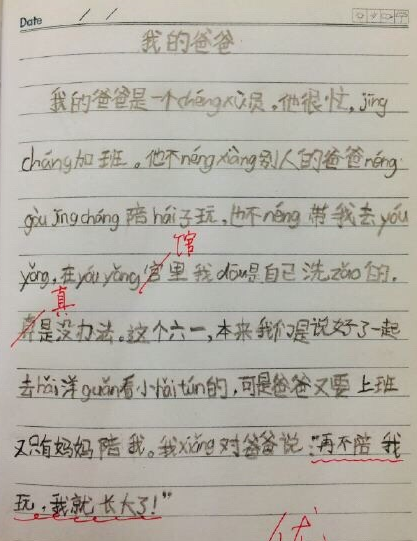 Date / /
我的爸爸
我的爸爸是一个chéngxù员。他很忙,jīng
cháng加班。他不néngxiàng别人的爸爸néng
gòu jīngcháng陪hái子玩,也不néng带我去yóu
馆
yǒng,在yóuyǒng宫里我dōu是自己洗zǎo的。
真
是没办法。这个六一,本来我们是说好了一起
去hǎi洋guǎn看小hǎitún的,可是爸爸又要上班
又只有妈妈陪我。我xiǎng对爸爸说:"再不陪我
玩,我就长大了!"
优